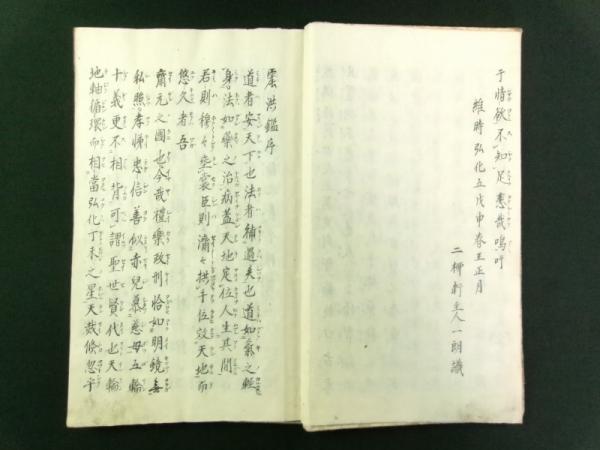 于情欲不知足悲哉嗚呼
維時弘化五戊申春王正月
二柳軒主人一朗識
震洪鑑序
道者安天下也法者補過失也道如氣之輕
身法如藥之治病蓋天地定位人生其間
君則穆々垂裳臣則濟々拱手位效天地而
悠久者吾
齊元之國也今哉禮樂政刑恰如明鏡無
私照孝悌忠信善似赤兒慕慈母五輪
十義更不相背可謂聖世賢代也天輪
地軸循環而相當弘化丁未之星天哉倏忽乎